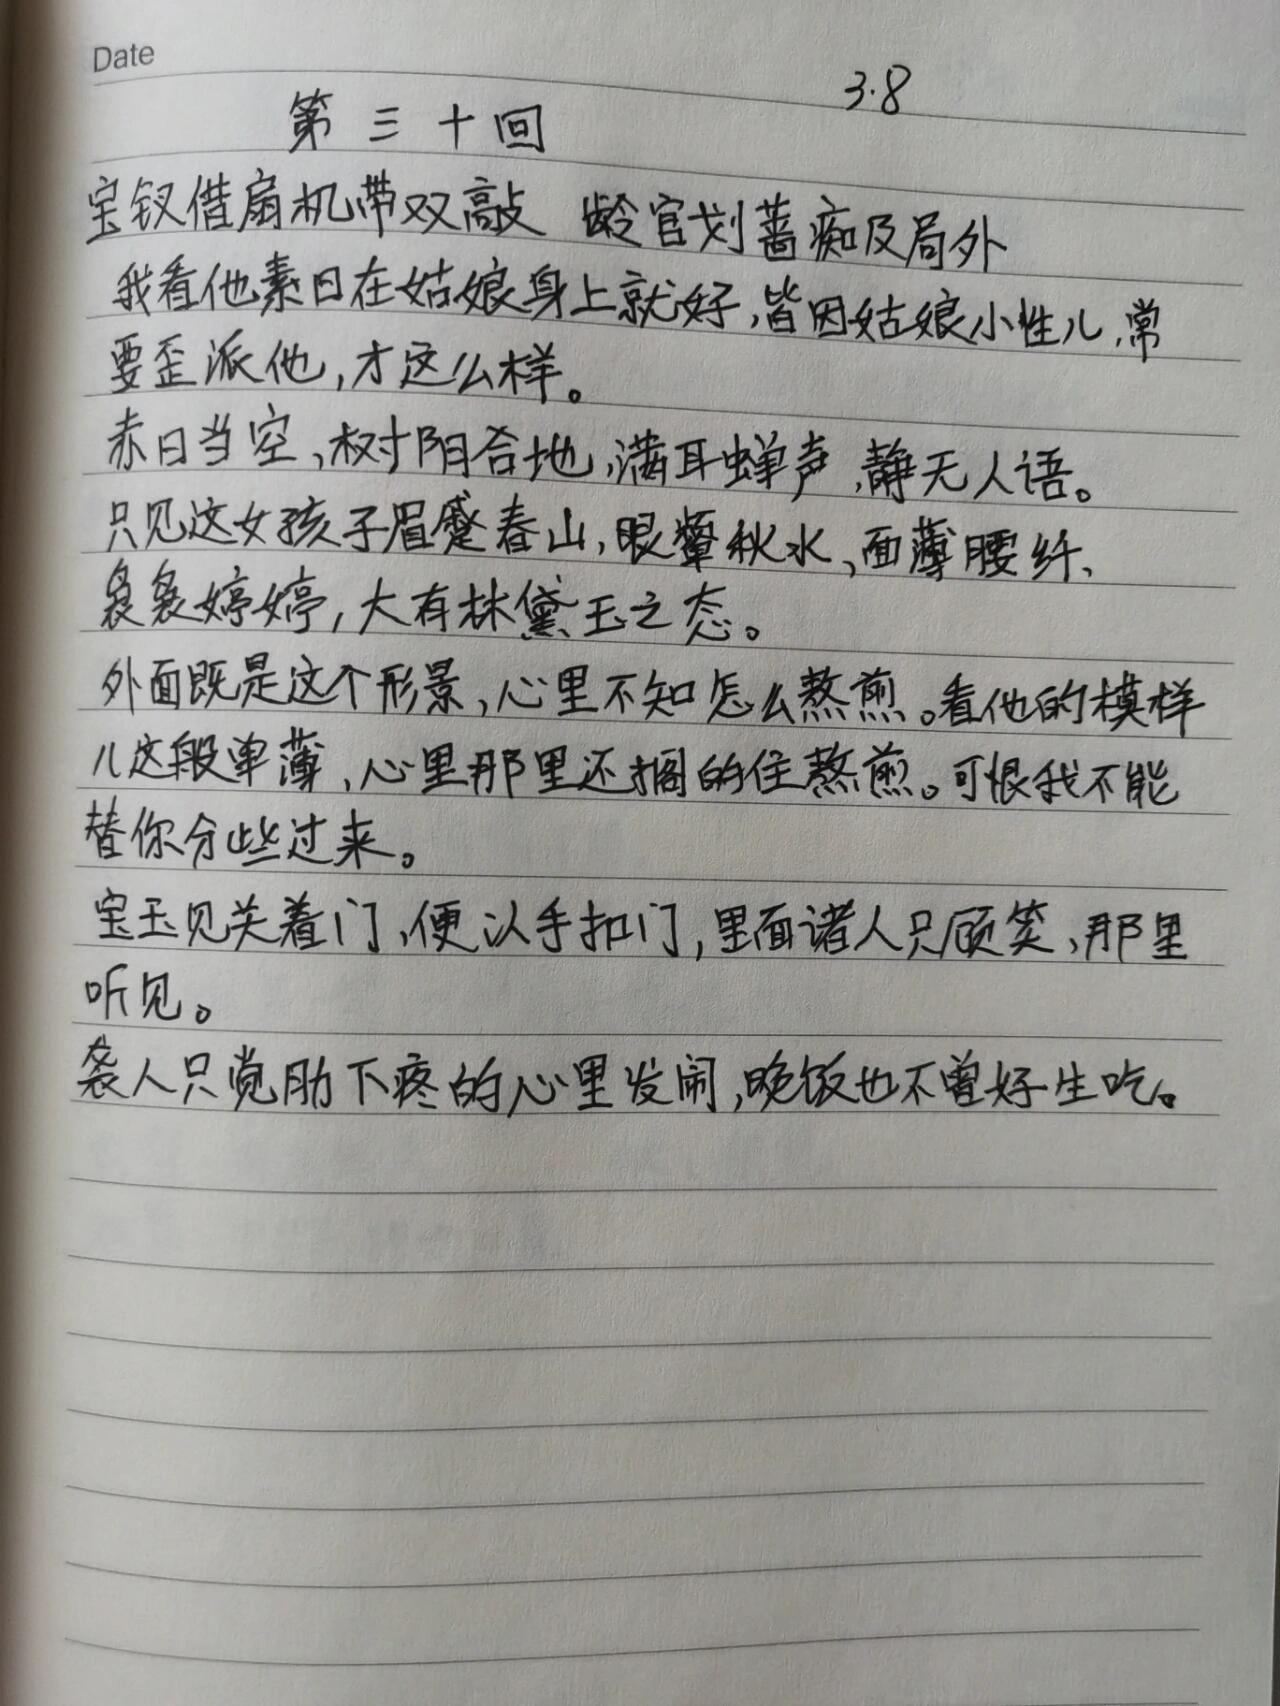 Date
3.8
第三十回
宝钗借扇机带双敲 龄官划蔷痴及局外
我看他素日在姑娘身上就好,皆因姑娘小性儿,常
要歪派他,才这么样。
赤日当空,树阴合地,满耳蝉声,静无人语。
只见这女孩子眉蹙春山,眼颦秋水,面薄腰纤、
袅袅婷婷,大有林黛玉之态。
外面既是这个形景,心里不知怎么熬煎。看他的模样
儿这般单薄,心里那里还搁的住熬煎。可恨我不能
替你分些过来。
宝玉见关着门,便以手扣门,里面诸人只顾笑,那里
听见。
袭人只觉肋下疼的心里发闹,晚饭也不曾好生吃。